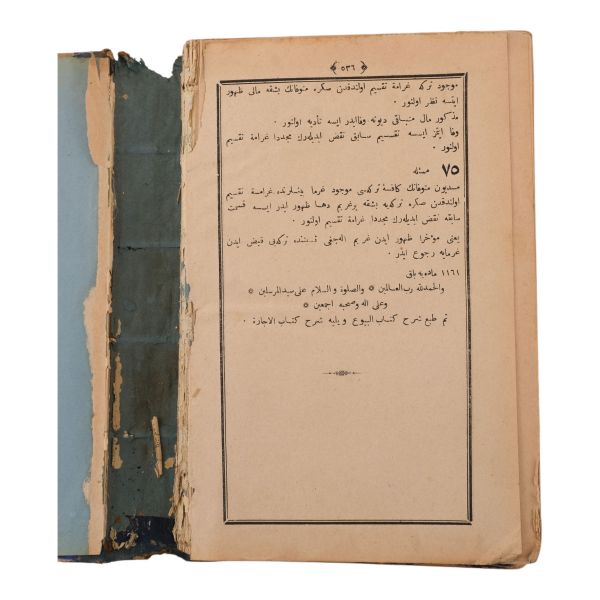 ﴿ ٥٣٦ ﴾
موجود تركه غرامة تقسيم اولندقدن صكره متوفانك بشقه مالى ظهور
ايتسه نظر اولنور
مذكور مال متباقى ديونه وفا ايدر ايسه تأديه اولنور .
وفا ايتمز ايسه تقسيم سابق نقض ايديله رك مجددا غرامة تقسيم
اولنور .
٧٥ مسئله
مديون متوفانك كافۀ تركه سى موجود غرما بينلرنده غرامة تقسيم
اولندقدن صكره تركه يه بشقه بر غريم دها ظهور ايدر ايسه قسمت
سابقه نقض ايديله رك مجددا غرامة تقسيم اولنور .
يعنى مؤخرا ظهور ايدن غريم اله جغى قسمتنده تركه يى قبض ايدن
غرمايه رجوع ايدر .
١١٦١ ماده يه باق
والحمدلله رب العالمين * والصلوة والسلام على سيد المرسلين *
وعلى اله وصحبه اجمعين *
تم طبع شرح كتاب البيوع ويليه شرح كتاب الاجاره .